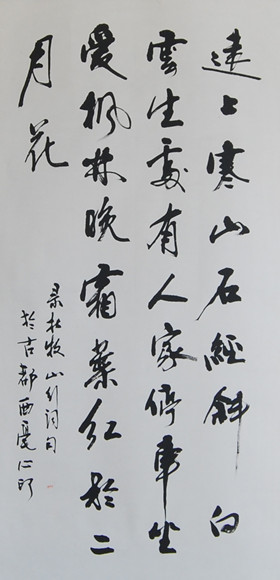 遠上寒山石經斜白
雲生處有人家停車坐
愛楓林晚霜葉紅於二
月花
录杜牧山行詩句
於古都西